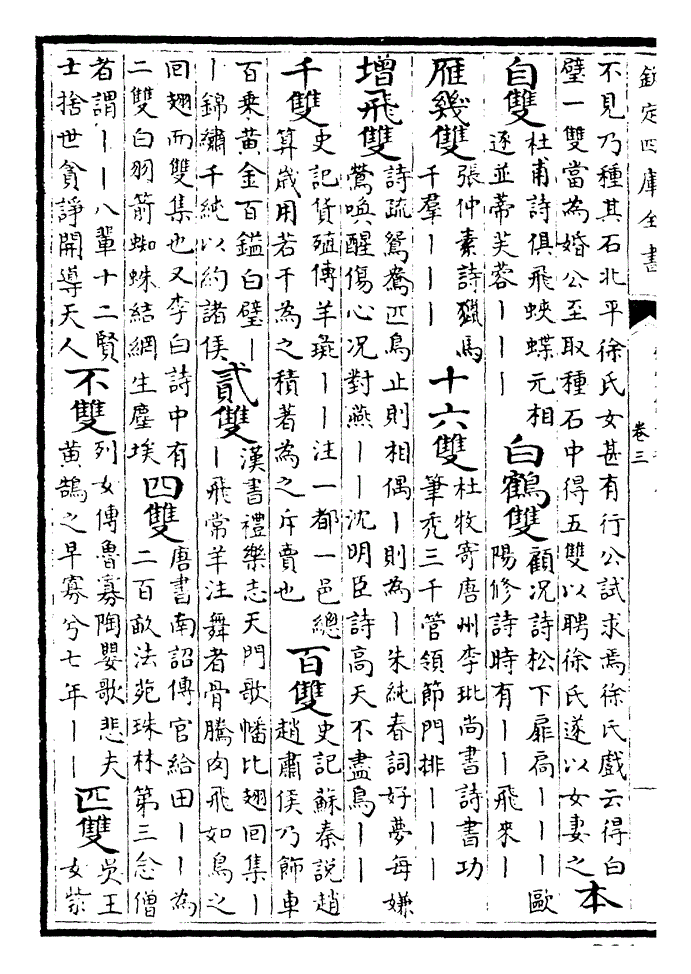 欽定四庫全書
卷三
不見乃種其石北平徐氏女甚有行公試求焉徐氏戲云得白
璧一雙當為婚公至取種石中得五雙以聘徐氏遂以女妻之
本
自雙
杜甫詩俱飛蛺蝶元相
逐並蔕芙蓉丨丨丨
白鶴雙
顧况詩松下扉扃丨丨丨歐
陽修詩時有丨丨飛來丨
雁幾雙
張仲素詩獵馬
千羣丨丨丨
十六雙
杜牧寄唐州李玭尚書詩書功
筆秃三千管領節門排丨丨丨
增飛雙
詩疏鴛鴦匹鳥止則相偶丨則為丨朱純春詞好夢每嫌
鶯喚醒傷心况對燕丨丨沈明臣詩高天不盡鳥丨丨
千雙
史記貨殖傳羊彘丨丨注一都一邑總
算歲用若干為之積著為之斥賣也
百雙
史記蘇秦說趙
趙肅侯乃飾車
百乗黄金百鎰白璧丨
丨錦繡千純以約諸侯
貳雙
漢書禮樂志天門歌幡比翅回集丨
丨飛常羊注舞者骨騰肉飛如鳥之
回翅而雙集也又李白詩中有
二雙白羽箭蜘蛛結網生塵埃
四雙
唐書南詔傳官給田丨丨為
二百畝法苑珠林第三念僧
者謂丨丨八輩十二賢
士捨世貪諍開導天人
不雙
列女傳魯寡陶嬰歌悲夫
黄鵠之早寡兮七年丨丨
匹雙
吳王
女紫